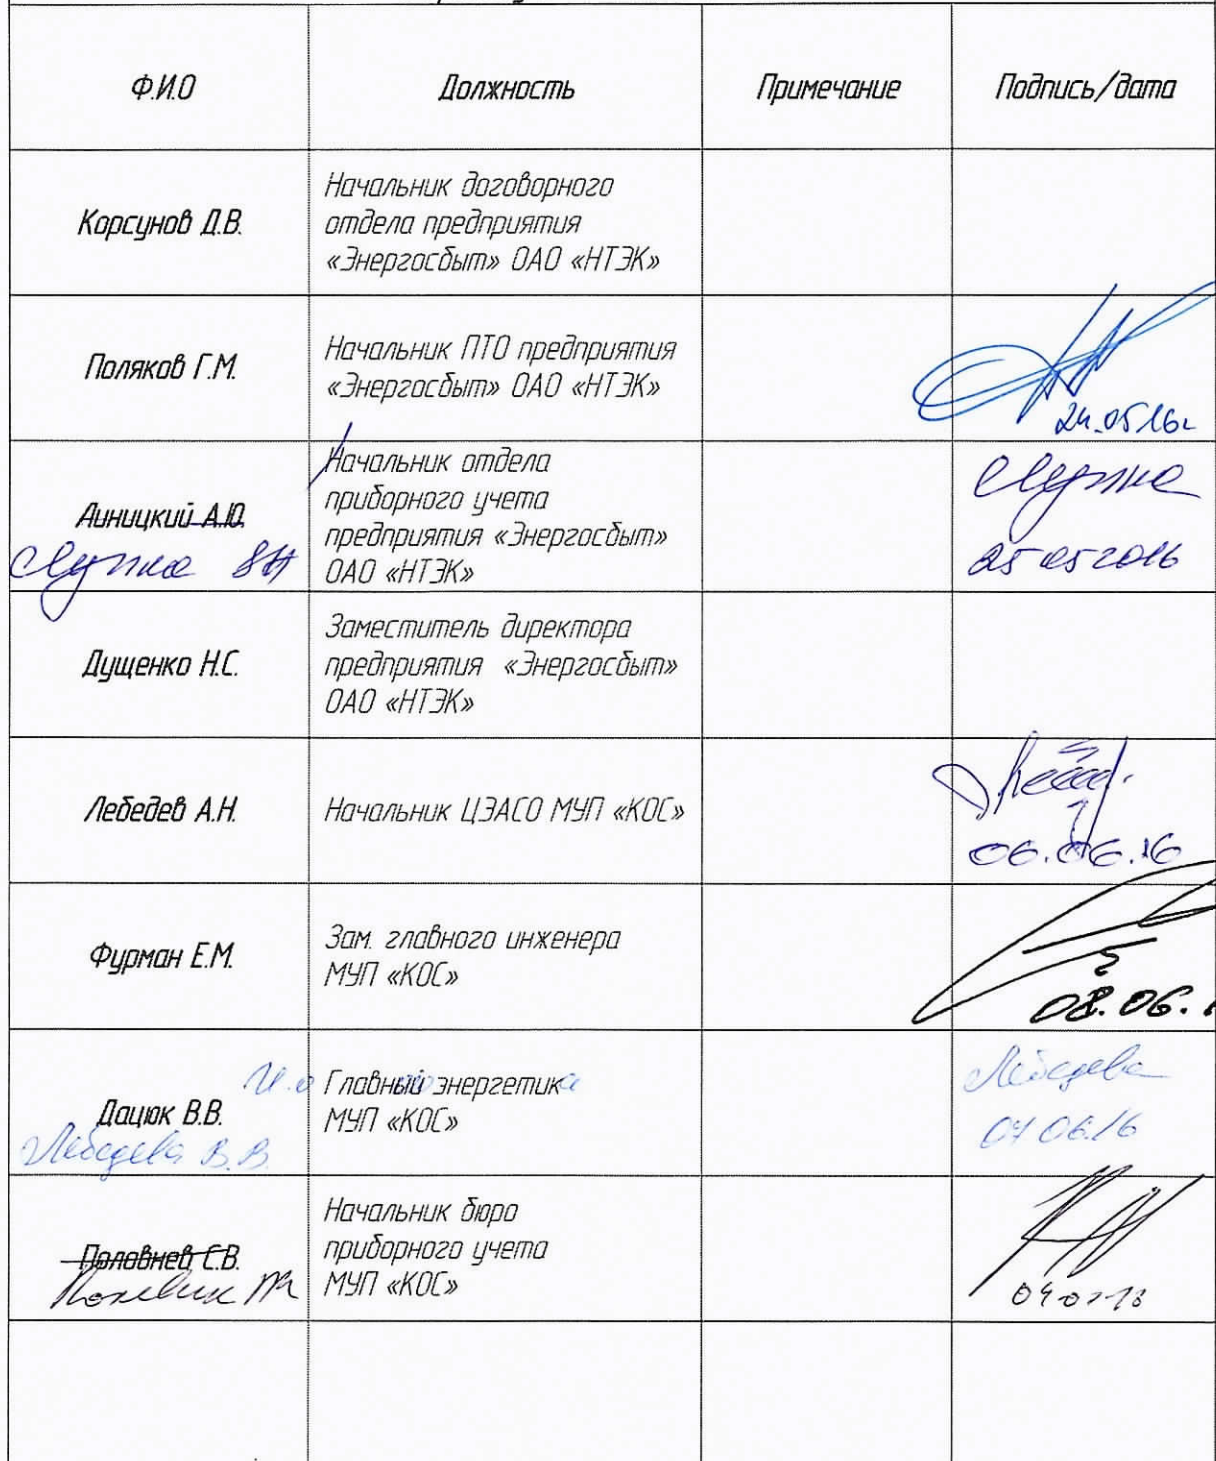 Ф.И.О
Должность
Примечание
Подпись/дата
Корсунов Д.В.
Начальник договорного
отдела предприятия
«Энергосбыт» ОАО «НТЭК»
Поляков Г.М.
Начальник ПТО предприятия
«Энергосбыт» ОАО «НТЭК»
24.05.16г
Линицкий А.Ю.
Начальник отдела
приборного учета
предприятия «Энергосбыт»
ОАО «НТЭК»
25 05 2016
Дущенко Н.С.
Заместитель директора
предприятия «Энергосбыт»
ОАО «НТЭК»
Лебедев А.Н.
Начальник ЦЭАСО МУП «КОС»
06.06.16
Фурман Е.М.
Зам. главного инженера
МУП «КОС»
08.06.
Дацюк В.В.
Лебедева В.В.
И.о Главный энергетика
МУП «КОС»
Лебедева
07 06.16
Половнев С.В.
Начальник бюро
приборного учета
МУП «КОС»